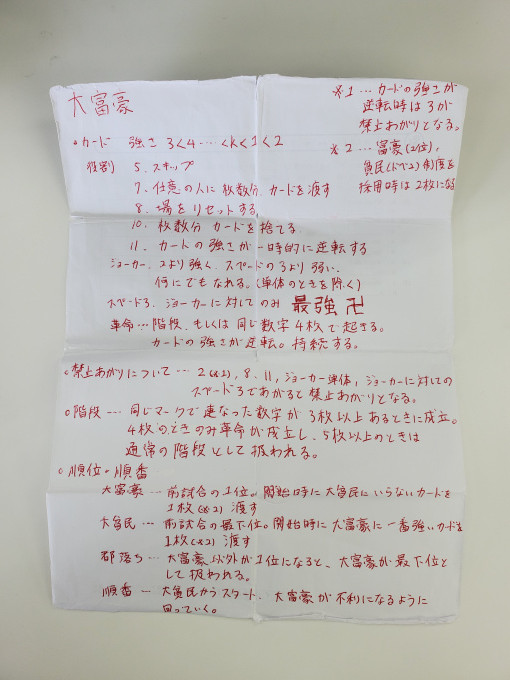 大富豪
※1…カードの強さが
逆転時は3が
禁止あがりとなる。
※2…富豪(2位),
貧民(ドベ2)制度を
採用時は2枚になる
○カード 強さ 3<4…<K<1<2
役割) 5. スキップ
7. 任意の人に枚数分 カードを渡す
8. 場をリセットする
10. 枚数分 カードを捨てる
11. カードの強さが一時的に逆転する
ジョーカー. 2より強く、スペードの3より弱い.
何にでもなれる。(単体のときを除く)
スペード3. ジョーカーに対してのみ 最強 卍
革命…階段、もしくは同じ数字4枚で起きる。
カードの強さが逆転。持続する。
○禁止あがりについて…2(※1), 8, 11, ジョーカー単体, ジョーカーに対しての
スペード3であがると禁止あがりとなる。
○階段…同じマークで連なった数字が3枚以上あるときに成立。
4枚のときのみ革命が成立し、5枚以上のときは
通常の階段として扱われる。
○順位・順番
大富豪…前試合の1位。開始時に大貧民にいらないカードを
1枚(※2)渡す
大貧民…前試合の最下位。開始時に大富豪に一番強いカードを
1枚(※2)渡す
都落ち…大富豪以外が1位になると、大富豪が最下位と
して扱われる。
順番…大貧民からスタート、大富豪が不利になるように
回っていく。